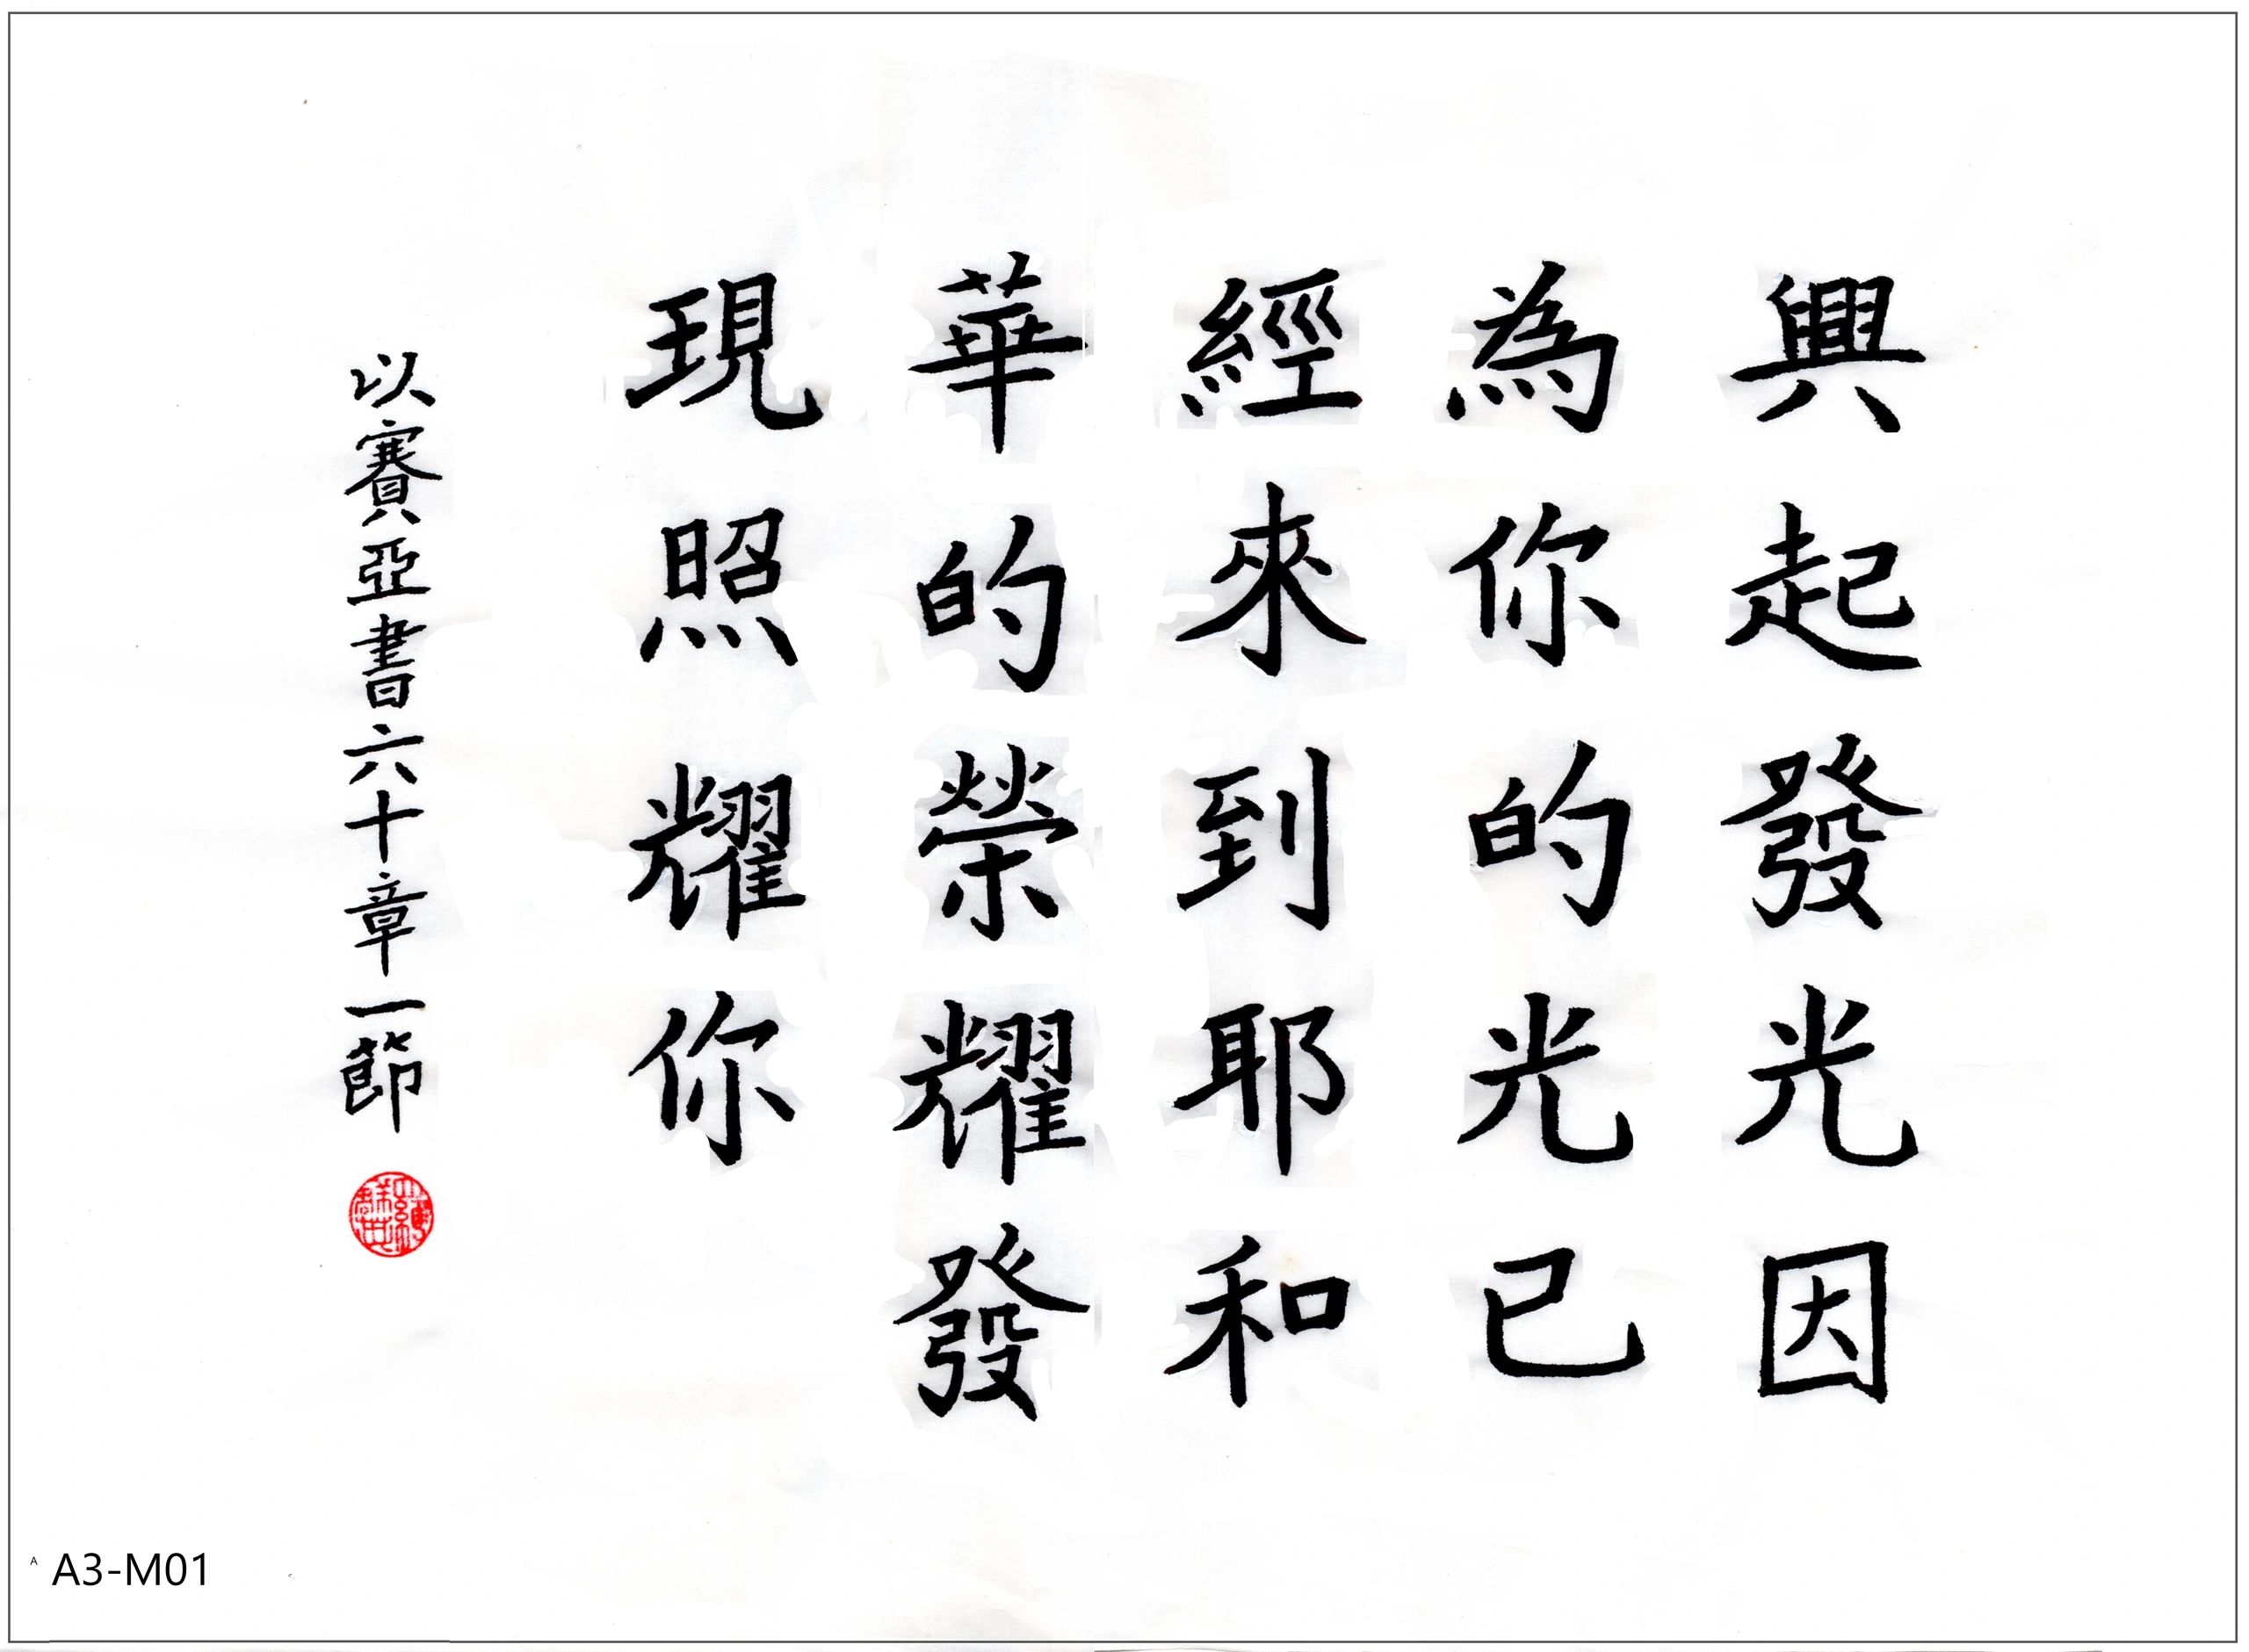 興起發光因
為你的光已
經來到耶和
華的榮耀發
現照耀你
以賽亞書六十章一節
A A3-M01